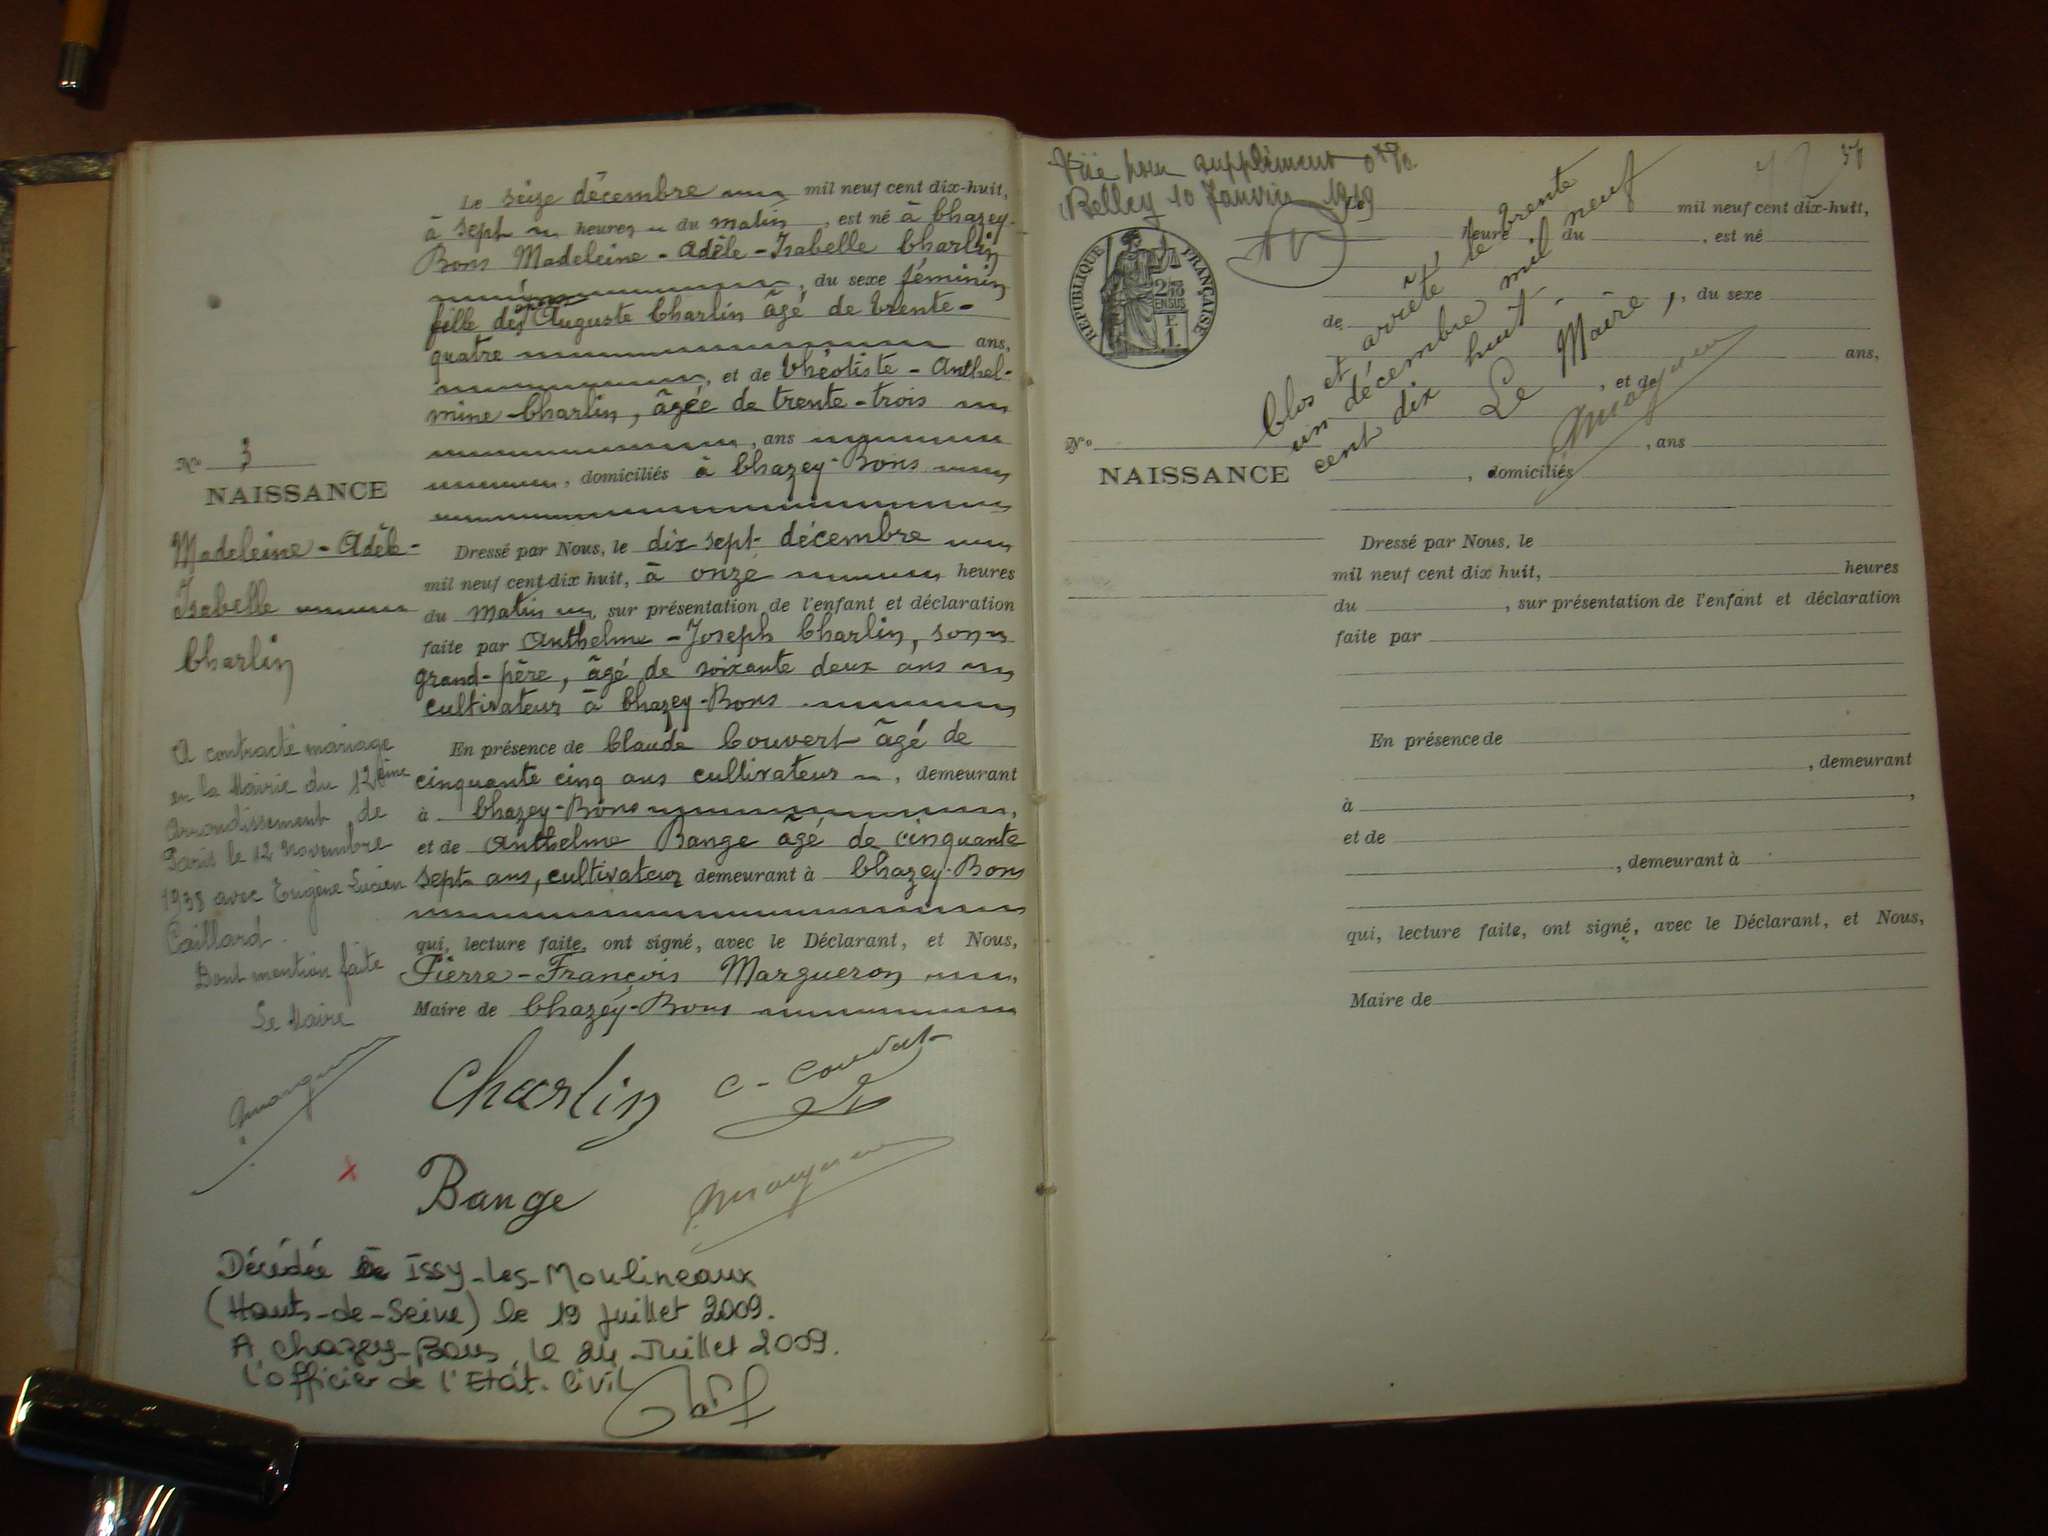 Le seize décembre mil neuf cent dix-huit,
à sept heures du matin, est né à Chazey-
Bons Madeleine-Adèle-Isabelle Charlin
, du sexe féminin
fille de Auguste Charlin âgé de trente-
quatre ans,
, et de Théotiste-Anthel-
mine Charlin, âgée de trente-trois
, ans
, domiciliés à Chazey-Bons
No 3
NAISSANCE
Madeleine-Adèle-
Isabelle
Charlin
Dressé par Nous, le dix sept décembre
mil neuf cent dix huit, à onze heures
du matin, sur présentation de l'enfant et déclaration
faite par Anthelme-Joseph Charlin, son
grand-père, âgé de soixante deux ans
cultivateur à Chazey-Bons
En présence de Claude Couvert âgé de
cinquante cinq ans cultivateur, demeurant
à Chazey-Bons,
et de Anthelme Bange âgé de cinquante
sept ans, cultivateur demeurant à Chazey-Bons
qui, lecture faite, ont signé, avec le Déclarant, et Nous,
Pierre-François Margueron
Maire de Chazey-Bons
A contracté mariage
en la Mairie du 12ème
arrondissement de
Paris le 12 Novembre
1938 avec Eugène Lucien
Caillard.
Dont mention faite
Le Maire
Margueron
Charlin C-Couvert
Bange Margueron
Décédée à Issy-Les-Moulineaux
(Hauts-de-Seine) le 19 Juillet 2009.
A Chazey-Bons, le 24 Juillet 2009.
L'officier de l'Etat-Civil
Vue pour supplément
Belley 10 Janvier 1919
RÉPUBLIQUE FRANÇAISE
mil neuf cent dix-huit,
heure du , est né
, du sexe
de
ans,
, et de
No , ans
NAISSANCE , domiciliés
Clos et arrêté le trente
un décembre mil neuf
cent dix huit.
Le Maire,
Margueron
Dressé par Nous, le
mil neuf cent dix huit, heures
du , sur présentation de l'enfant et déclaration
faite par
En présence de
, demeurant
à ,
et de
, demeurant à
qui, lecture faite, ont signé, avec le Déclarant, et Nous,
Maire de